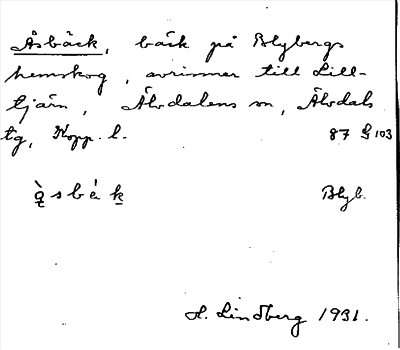 Åsbäck, bäck på Blybergs
hemskog, avrinner till Lill-
tjärn, Älvdalens sn, Älvdals
tg, Kopp. l. 87 G 103
Blyb.
H. Lindberg 1931.